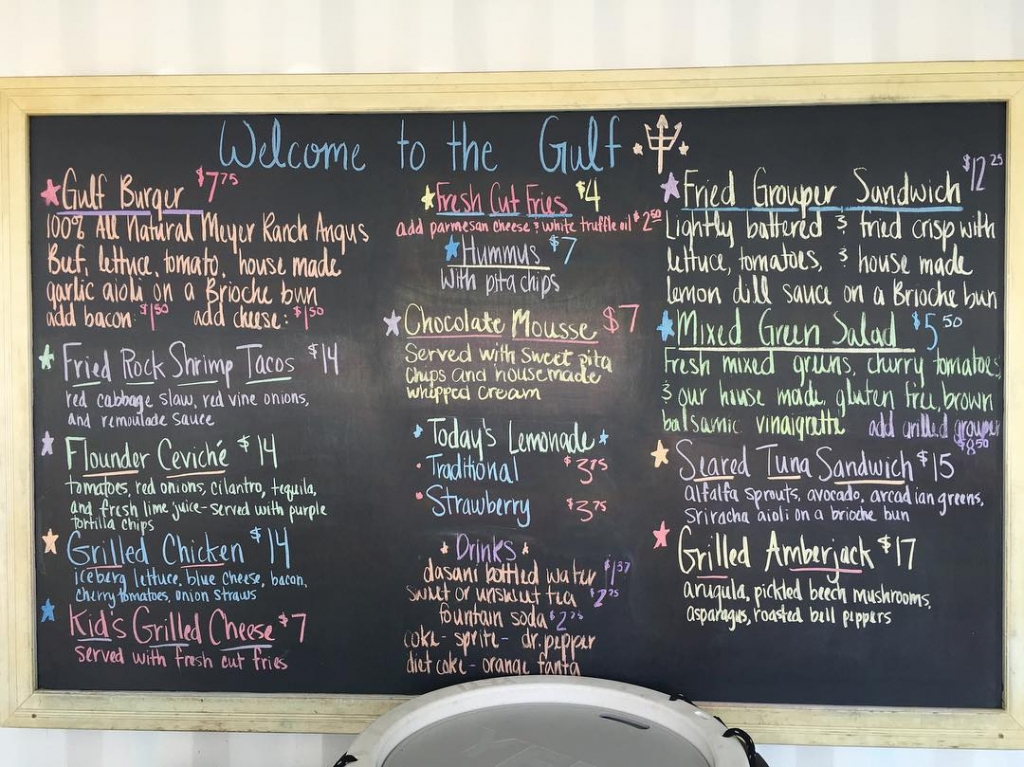 Welcome to the Gulf
Gulf Burger $7.75
100% All Natural Meyer Ranch Angus
Beef, lettuce, tomato, house made
garlic aioli on a Brioche bun
add bacon: $1.50 add cheese: $1.50
Fried Rock Shrimp Tacos $14
red cabbage slaw, red vine onions,
and remoulade sauce
Flounder Ceviché $14
tomatoes, red onions, cilantro, tequila,
and fresh lime juice - served with purple
tortilla chips
Grilled Chicken $14
iceberg lettuce, blue cheese, bacon,
cherry tomatoes, onion straws
Kid's Grilled Cheese $7
served with fresh cut fries
Fresh Cut Fries $4
add parmesan cheese & white truffle oil $2.50
Hummus $7
with pita chips
Chocolate Mousse $7
Served with sweet pita
chips and housemade
whipped cream
Today's Lemonade
Traditional $3.75
Strawberry $3.75
Drinks
dasani bottled water $1.37
sweet or unsweet tea $2.75
fountain soda $2.75
coke - sprite - dr. pepper
diet coke - orange fanta
Fried Grouper Sandwich $12.25
Lightly battered & fried crisp with
lettuce, tomatoes, & house made
lemon dill sauce on a Brioche bun
Mixed Green Salad $5.50
Fresh mixed greens, cherry tomatoes,
& our house made, gluten free, brown
balsamic vinaigrette add grilled grouper
$8.50
Seared Tuna Sandwich $15
alfalfa sprouts, avocado, arcadian greens,
Sriracha aioli on a brioche bun
Grilled Amberjack $17
arugula, pickled beech mushrooms,
asparagus, roasted bell peppers